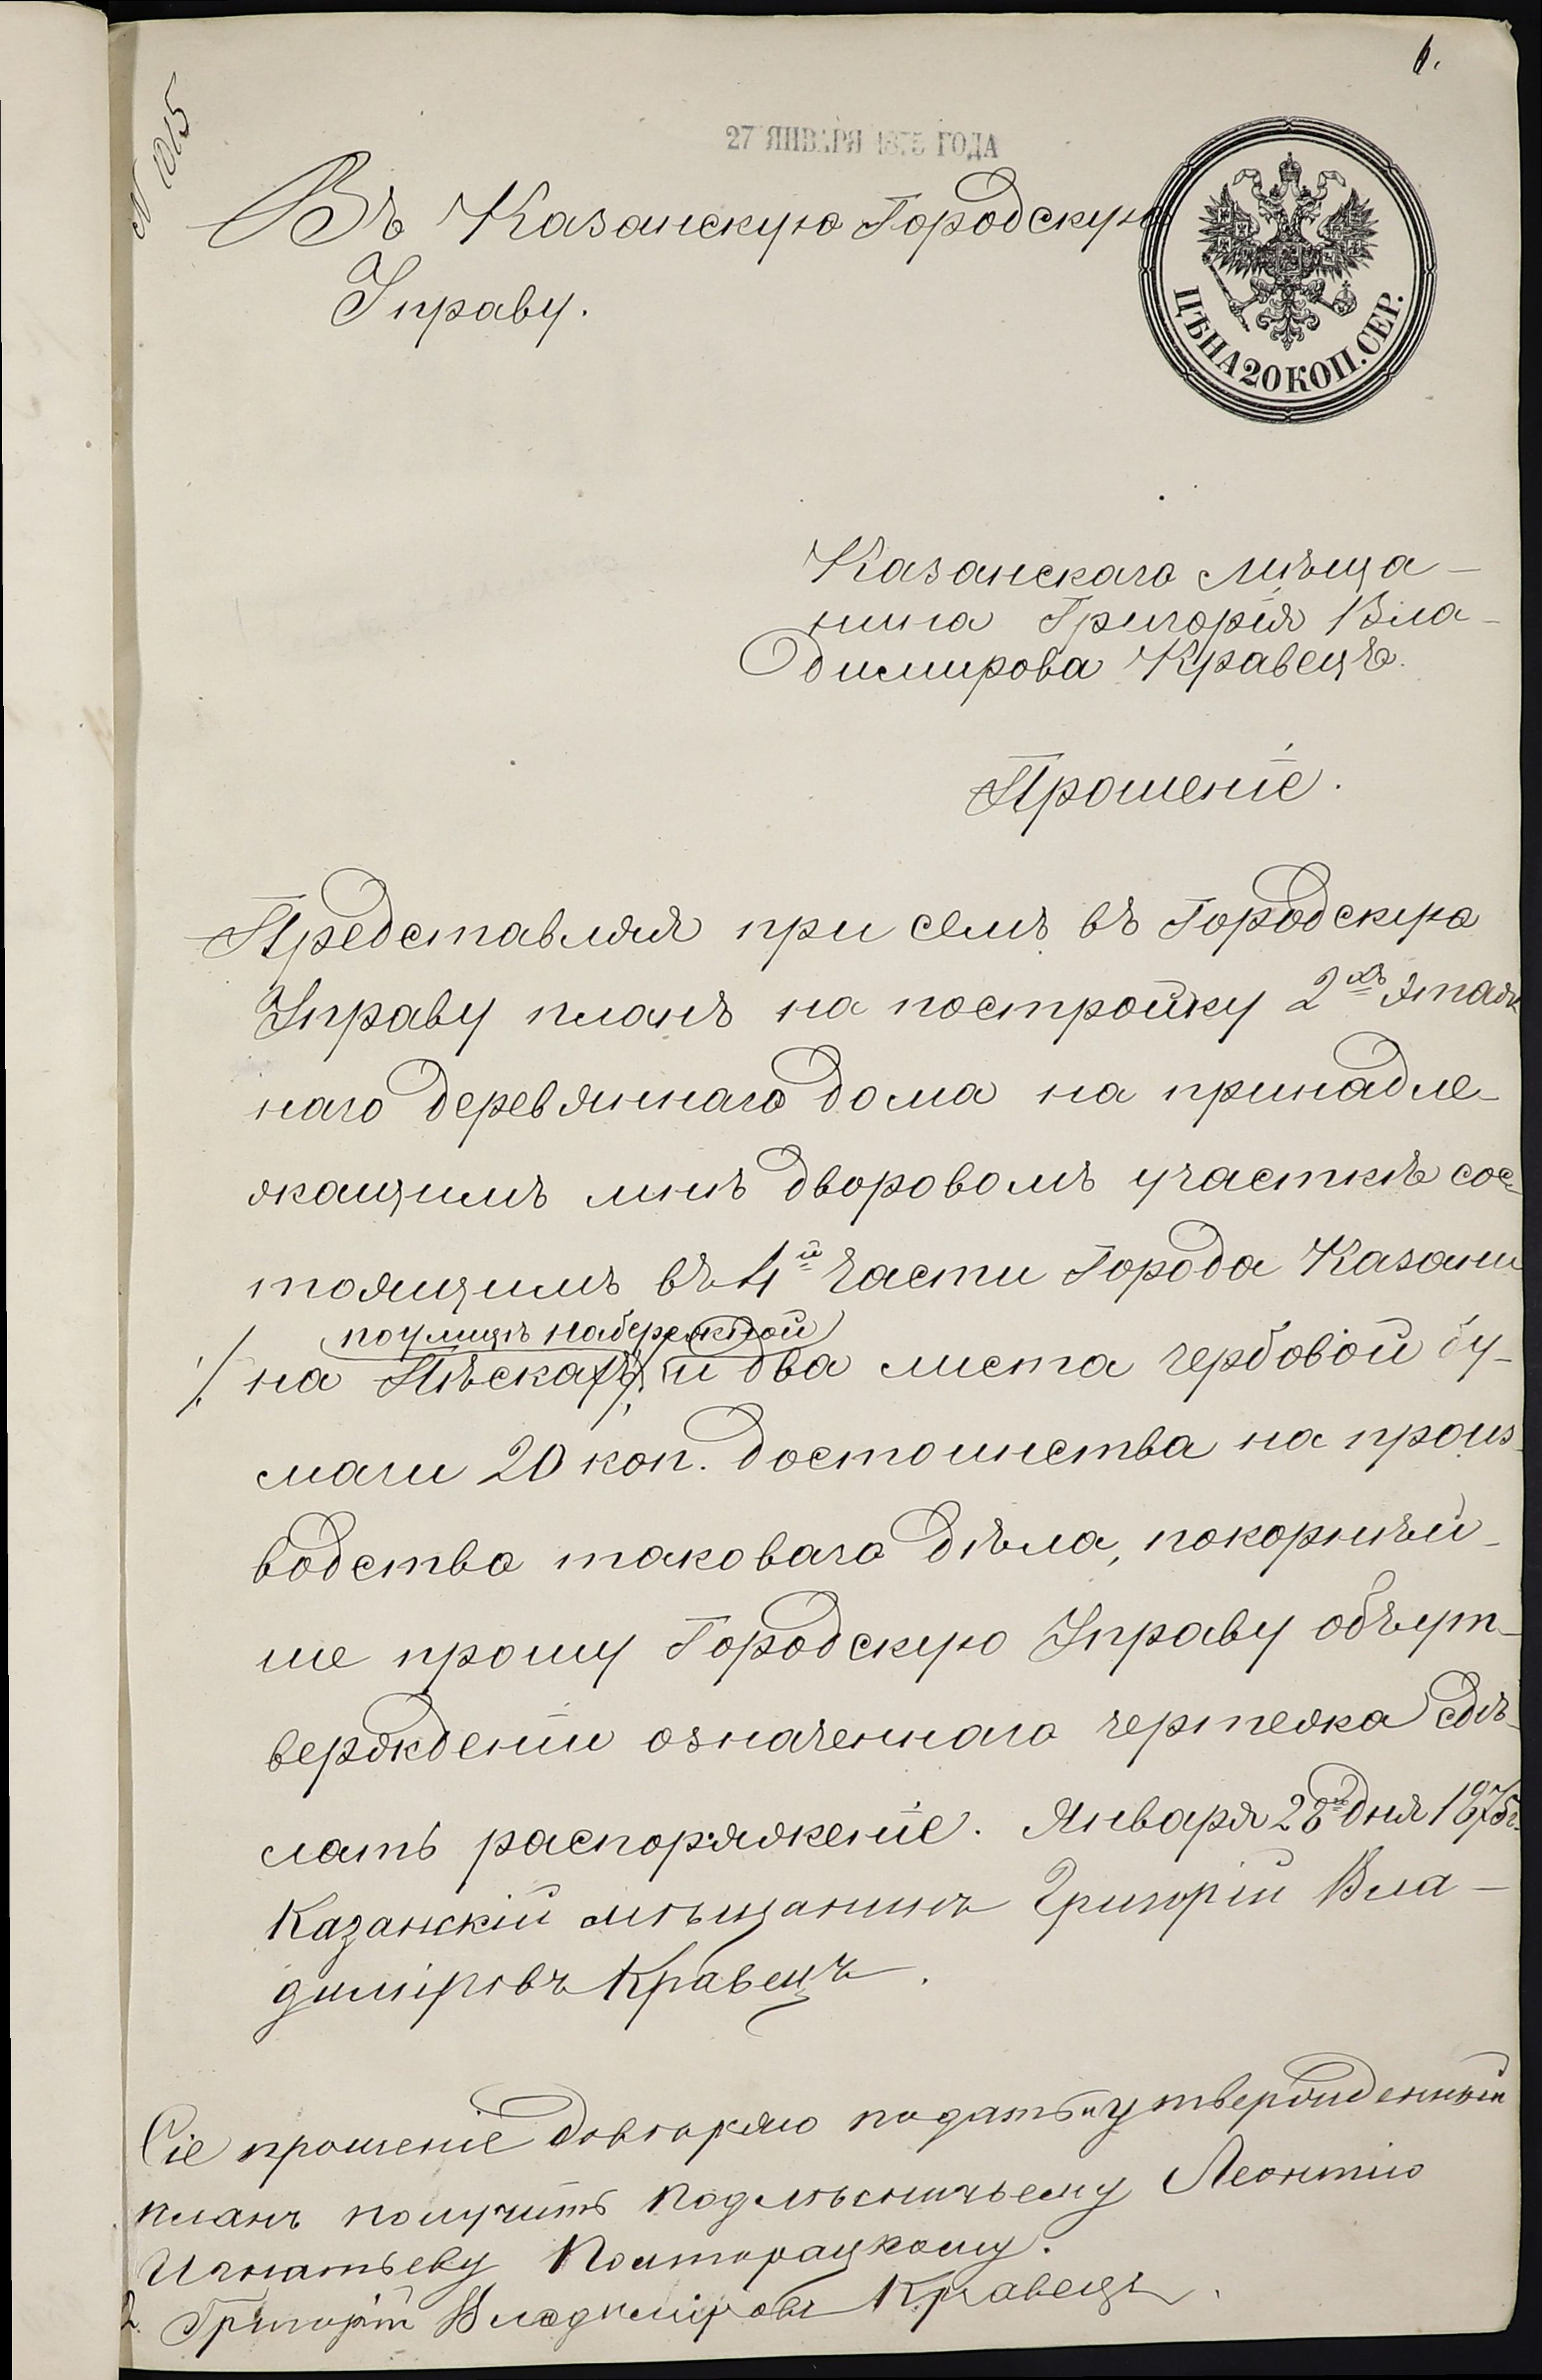 6.
N 1015
27 ЯНВАРЯ 1875 ГОДА
Въ Казанскую Городскую
Управу.
ЦѢНА 20 КОП. СЕР.
Казанскаго мѣща-
нина Григорія Вла-
димирова Кравецъ.
Прошеніе.
Представляя при семъ въ Городскую
Управу планъ на постройку 2хъ этаж
наго деревяннаго дома на принадле-
жащимъ мнѣ дворовомъ участкѣ сос-
тоящимъ въ 4й части Города Казани
по улицѣ набережной
на Пѣскахъ и два листа гербовой бу-
маги 20 коп. достоинства на произ-
водство таковаго дѣла, покорнѣй-
ше прошу Городскую Управу объ ут-
вержденіи означеннаго чертежа сдѣ-
лать распоряженіе. Января 28го дня 1875г.
Казанскій мѣщанинъ Григорій Вла-
диміровъ Кравецъ.
Сіе прошеніе довѣряю подать и утвержденный
планъ получить подлѣсничьему Леонтію
Игнатьеву Полторацкому.
Григорій Владиміровъ Кравецъ.